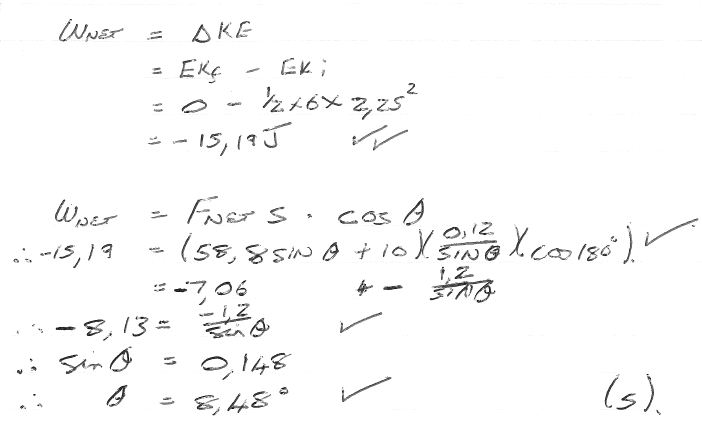 WNET = ΔKE
= EKf - EKi
= 0 - 1/2x6x2,25²
= - 15,19J ✓✓
WNET = FNET S . cos θ
∴ -15,19 = (58,8 SIN θ + 10)(0,12/SIN θ)(cos 180°) ✓
= -7,06 - 1,2/SIN θ
∴ - 8,13 = -1,2/sin θ ✓
∴ sin θ = 0,148
∴ θ = 8,48° ✓ (5).